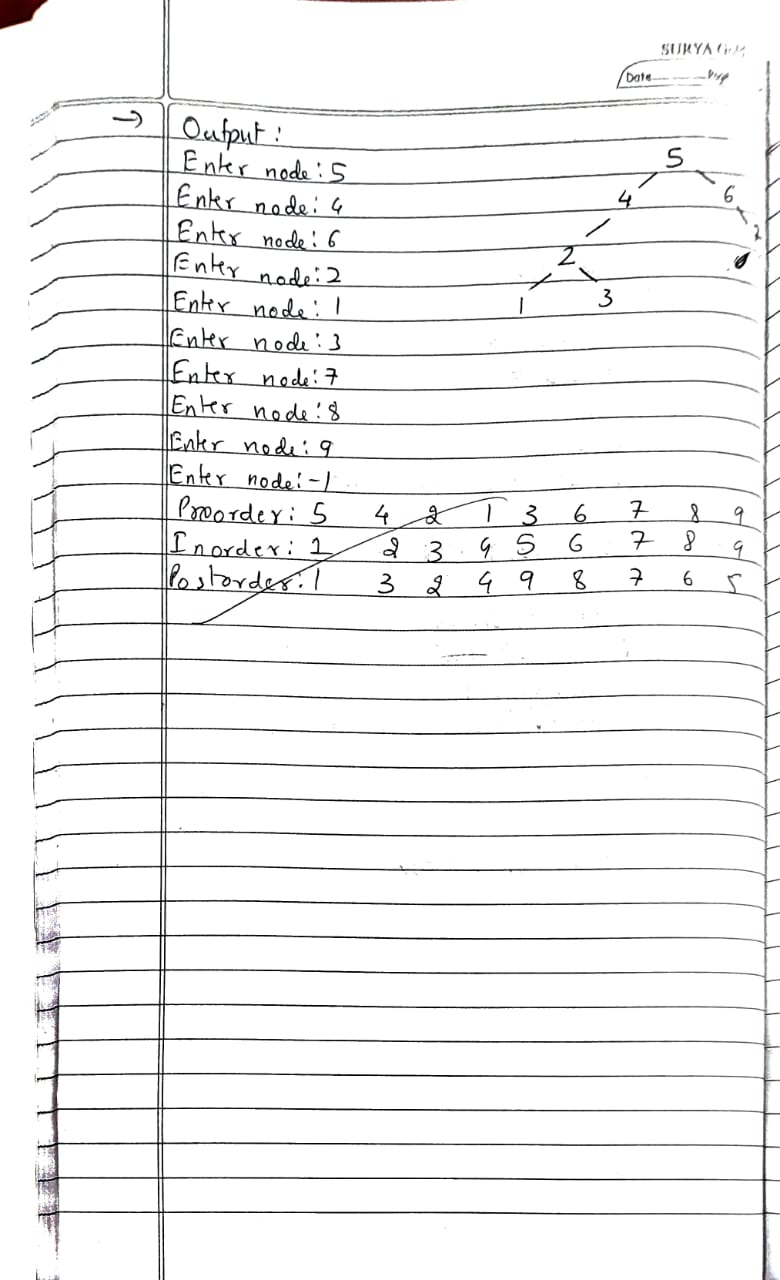 SURYA
Date
Output :
Enter node: 5
Enter node: 4
Enter node: 6
Enter node: 2
Enter node: 1
Enter node: 3
Enter node: 7
Enter node: 8
Enter node: 9
Enter node: -1
Preorder: 5 4 2 1 3 6 7 8 9
Inorder: 1 2 3 4 5 6 7 8 9
Postorder: 1 3 2 4 9 8 7 6 5
5
4 6
2
1 3